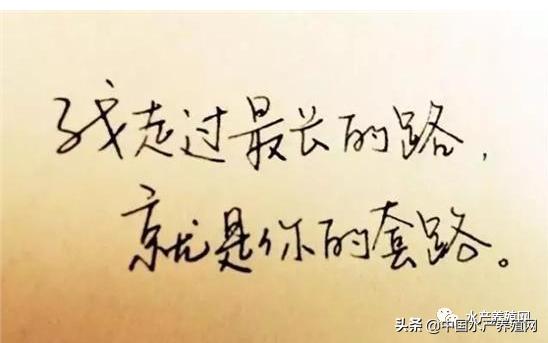 我走过最长的路，
就是你的套路。
水产养殖网
头条 @中国水产养殖网